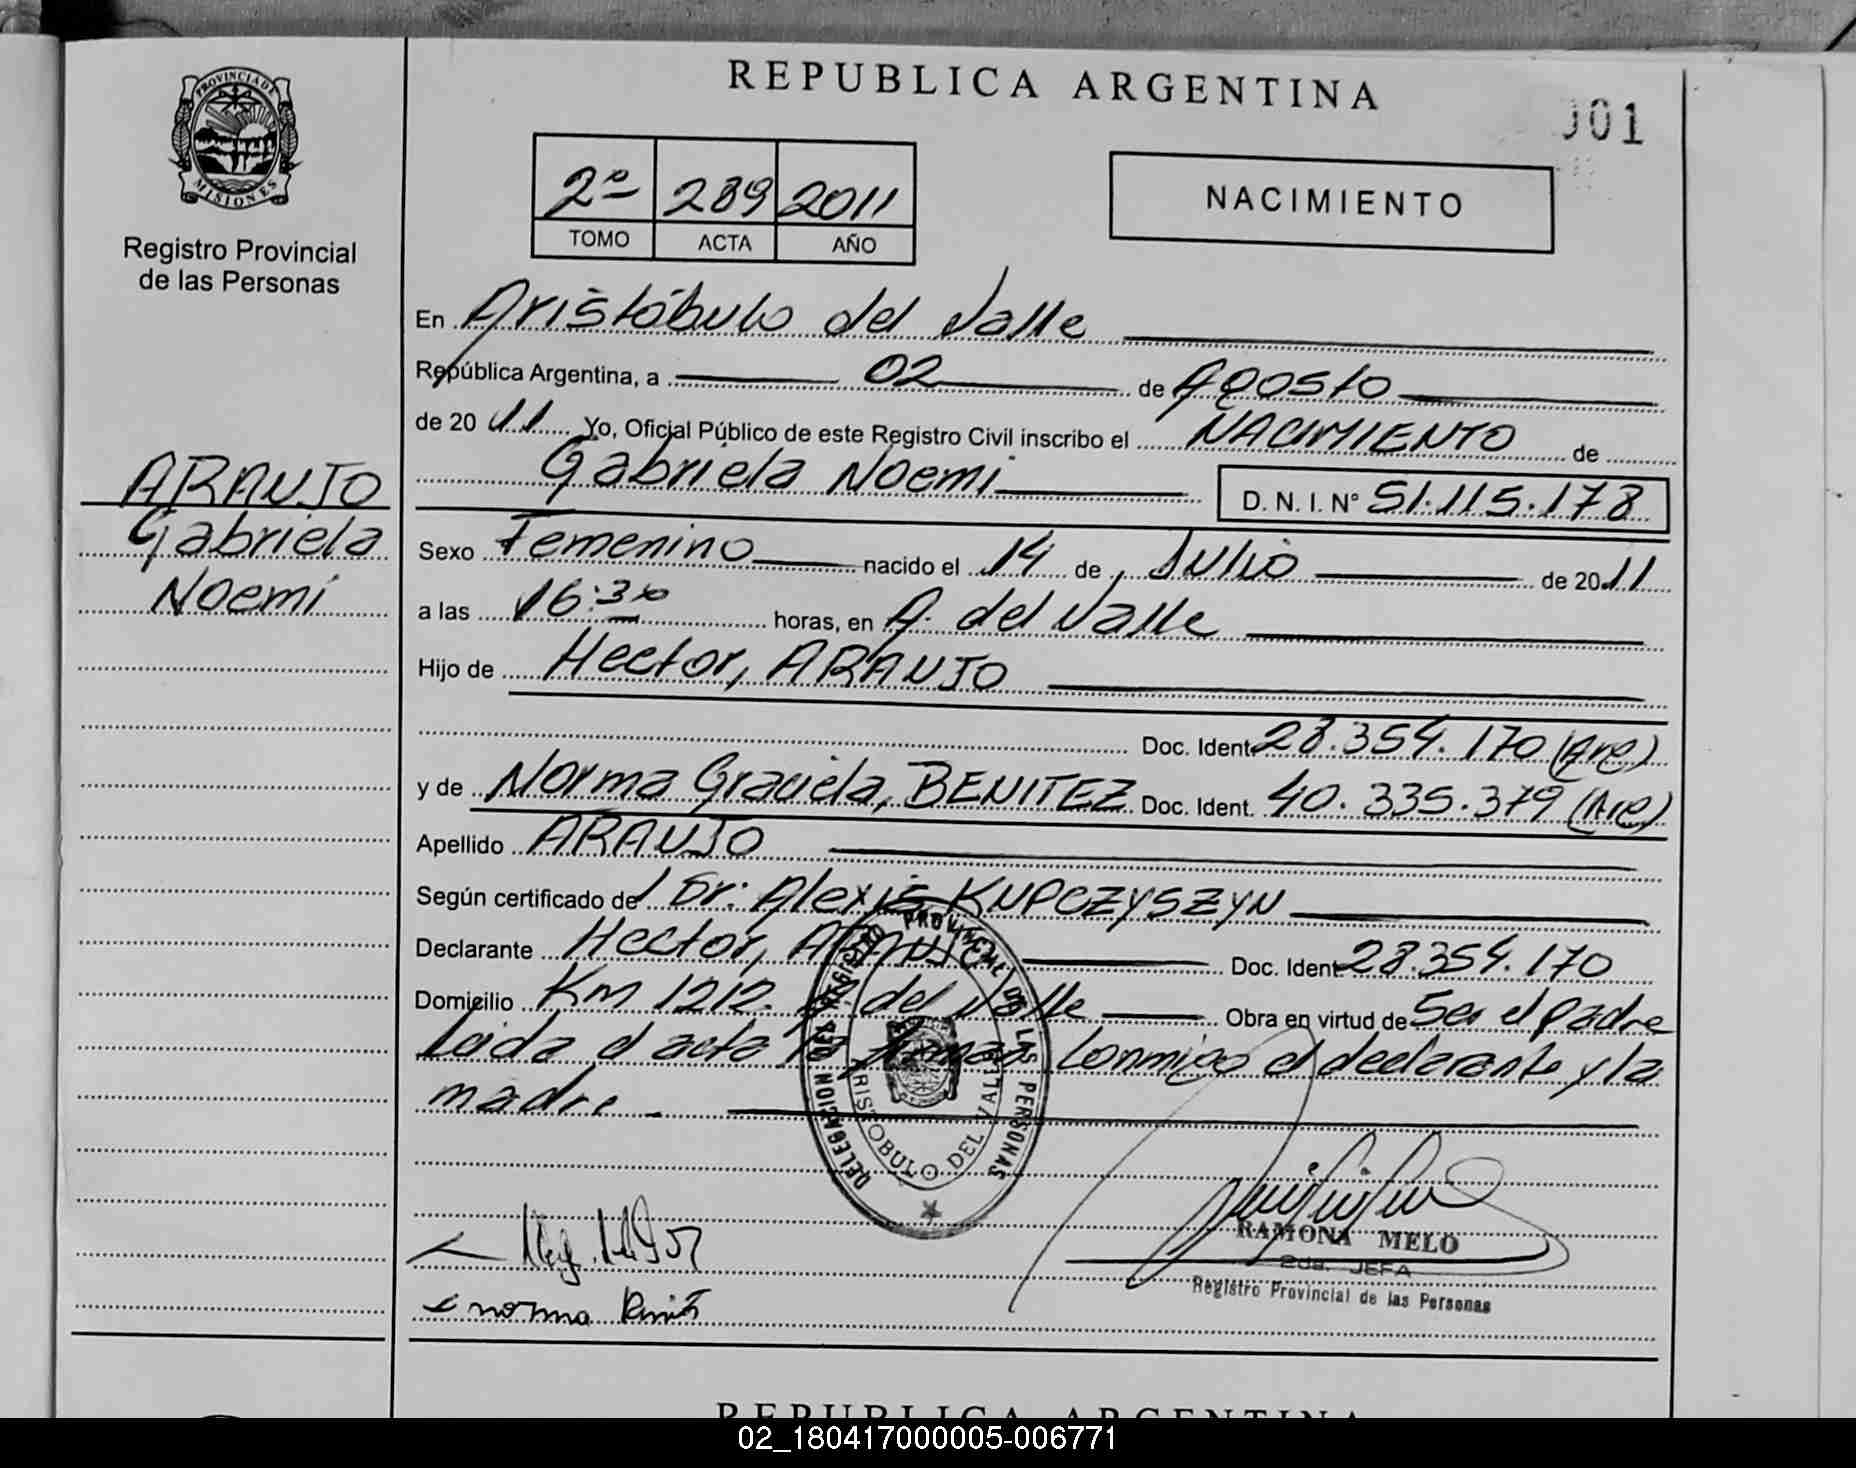 REPUBLICA ARGENTINA
001
PROVINCIA DE
MISIONES
Registro Provincial
de las Personas
2º 289 2011
TOMO ACTA AÑO
NACIMIENTO
En Aristóbulo del Valle
República Argentina, a 02 de Agosto
de 2011 Yo, Oficial Público de este Registro Civil inscribo el NACIMIENTO de
Gabriela Noemi D. N. I. Nº 51.115.178
ARAUJO
Gabriela
Noemi
Sexo Femenino nacido el 14 de Julio de 2011
a las 16:30 horas, en A. del Valle
Hijo de Hector, ARAUJO
Doc. Ident. 28.354.170 (Arg)
y de Norma Graciela, BENITEZ Doc. Ident. 40.335.379 (Arg)
Apellido ARAUJO
Según certificado del Dr: Alexis KUPCZYSZYN
Declarante Hector, ARAUJO Doc. Ident. 28.354.170
Domicilio Km 1212. A. del Valle Obra en virtud de Ser el padre
Leida el acta la firman conmigo el declarante y la
madre.
DELEGACION DEL REGISTRO PROVINCIAL DE LAS PERSONAS
ARISTOBULO DEL VALLE
RAMONA MELO
2da. JEFA
Registro Provincial de las Personas
norma Benitez
REPUBLICA ARGENTINA
02_180417000005-006771